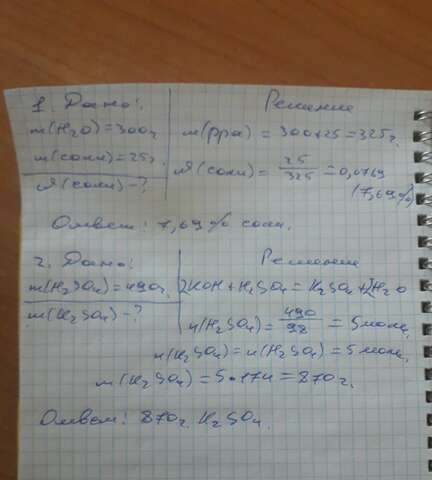 1. Дано:
m(H₂O)=300г
m(соли)=25г.
Я(соли)-?
Решение
m(рра) = 300+25=325г.
Я(соли) = 25/325 = 0,0769
(7,69%)
Ответ: 7,69% соли.
2. Дано:
m(H₂SO₄)=490г.
m(K₂SO₄)-?
Решение
2KOH+H₂SO₄=K₂SO₄+2H₂O
n(H₂SO₄)=490/98=5моль,
n(K₂SO₄)=n(H₂SO₄)=5моль,
m(K₂SO₄)=5*174=870г.
Ответ: 870г. K₂SO₄.